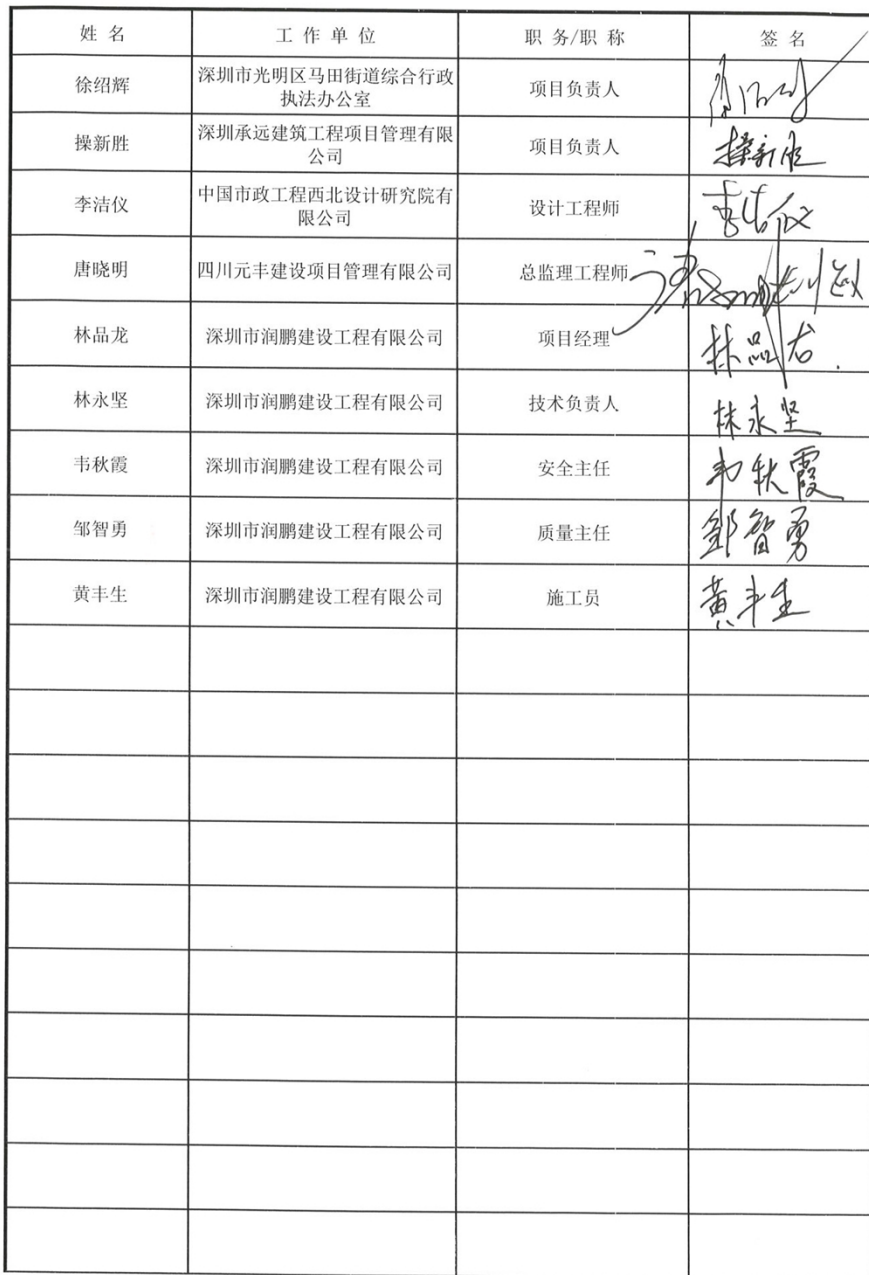 姓 名 工 作 单 位 职 务/职 称 签 名
徐绍辉 深圳市光明区马田街道综合行政 项目负责人
执法办公室
操新胜 深圳承远建筑工程项目管理有限 项目负责人 操新胜
公司
李洁仪 中国市政工程西北设计研究院有 设计工程师 李洁仪
限公司
唐晓明 四川元丰建设项目管理有限公司 总监理工程师
林品龙 深圳市润鹏建设工程有限公司 项目经理 林品龙
林永坚 深圳市润鹏建设工程有限公司 技术负责人 林永坚
韦秋霞 深圳市润鹏建设工程有限公司 安全主任 韦秋霞
邹智勇 深圳市润鹏建设工程有限公司 质量主任 邹智勇
黄丰生 深圳市润鹏建设工程有限公司 施工员 黄丰生